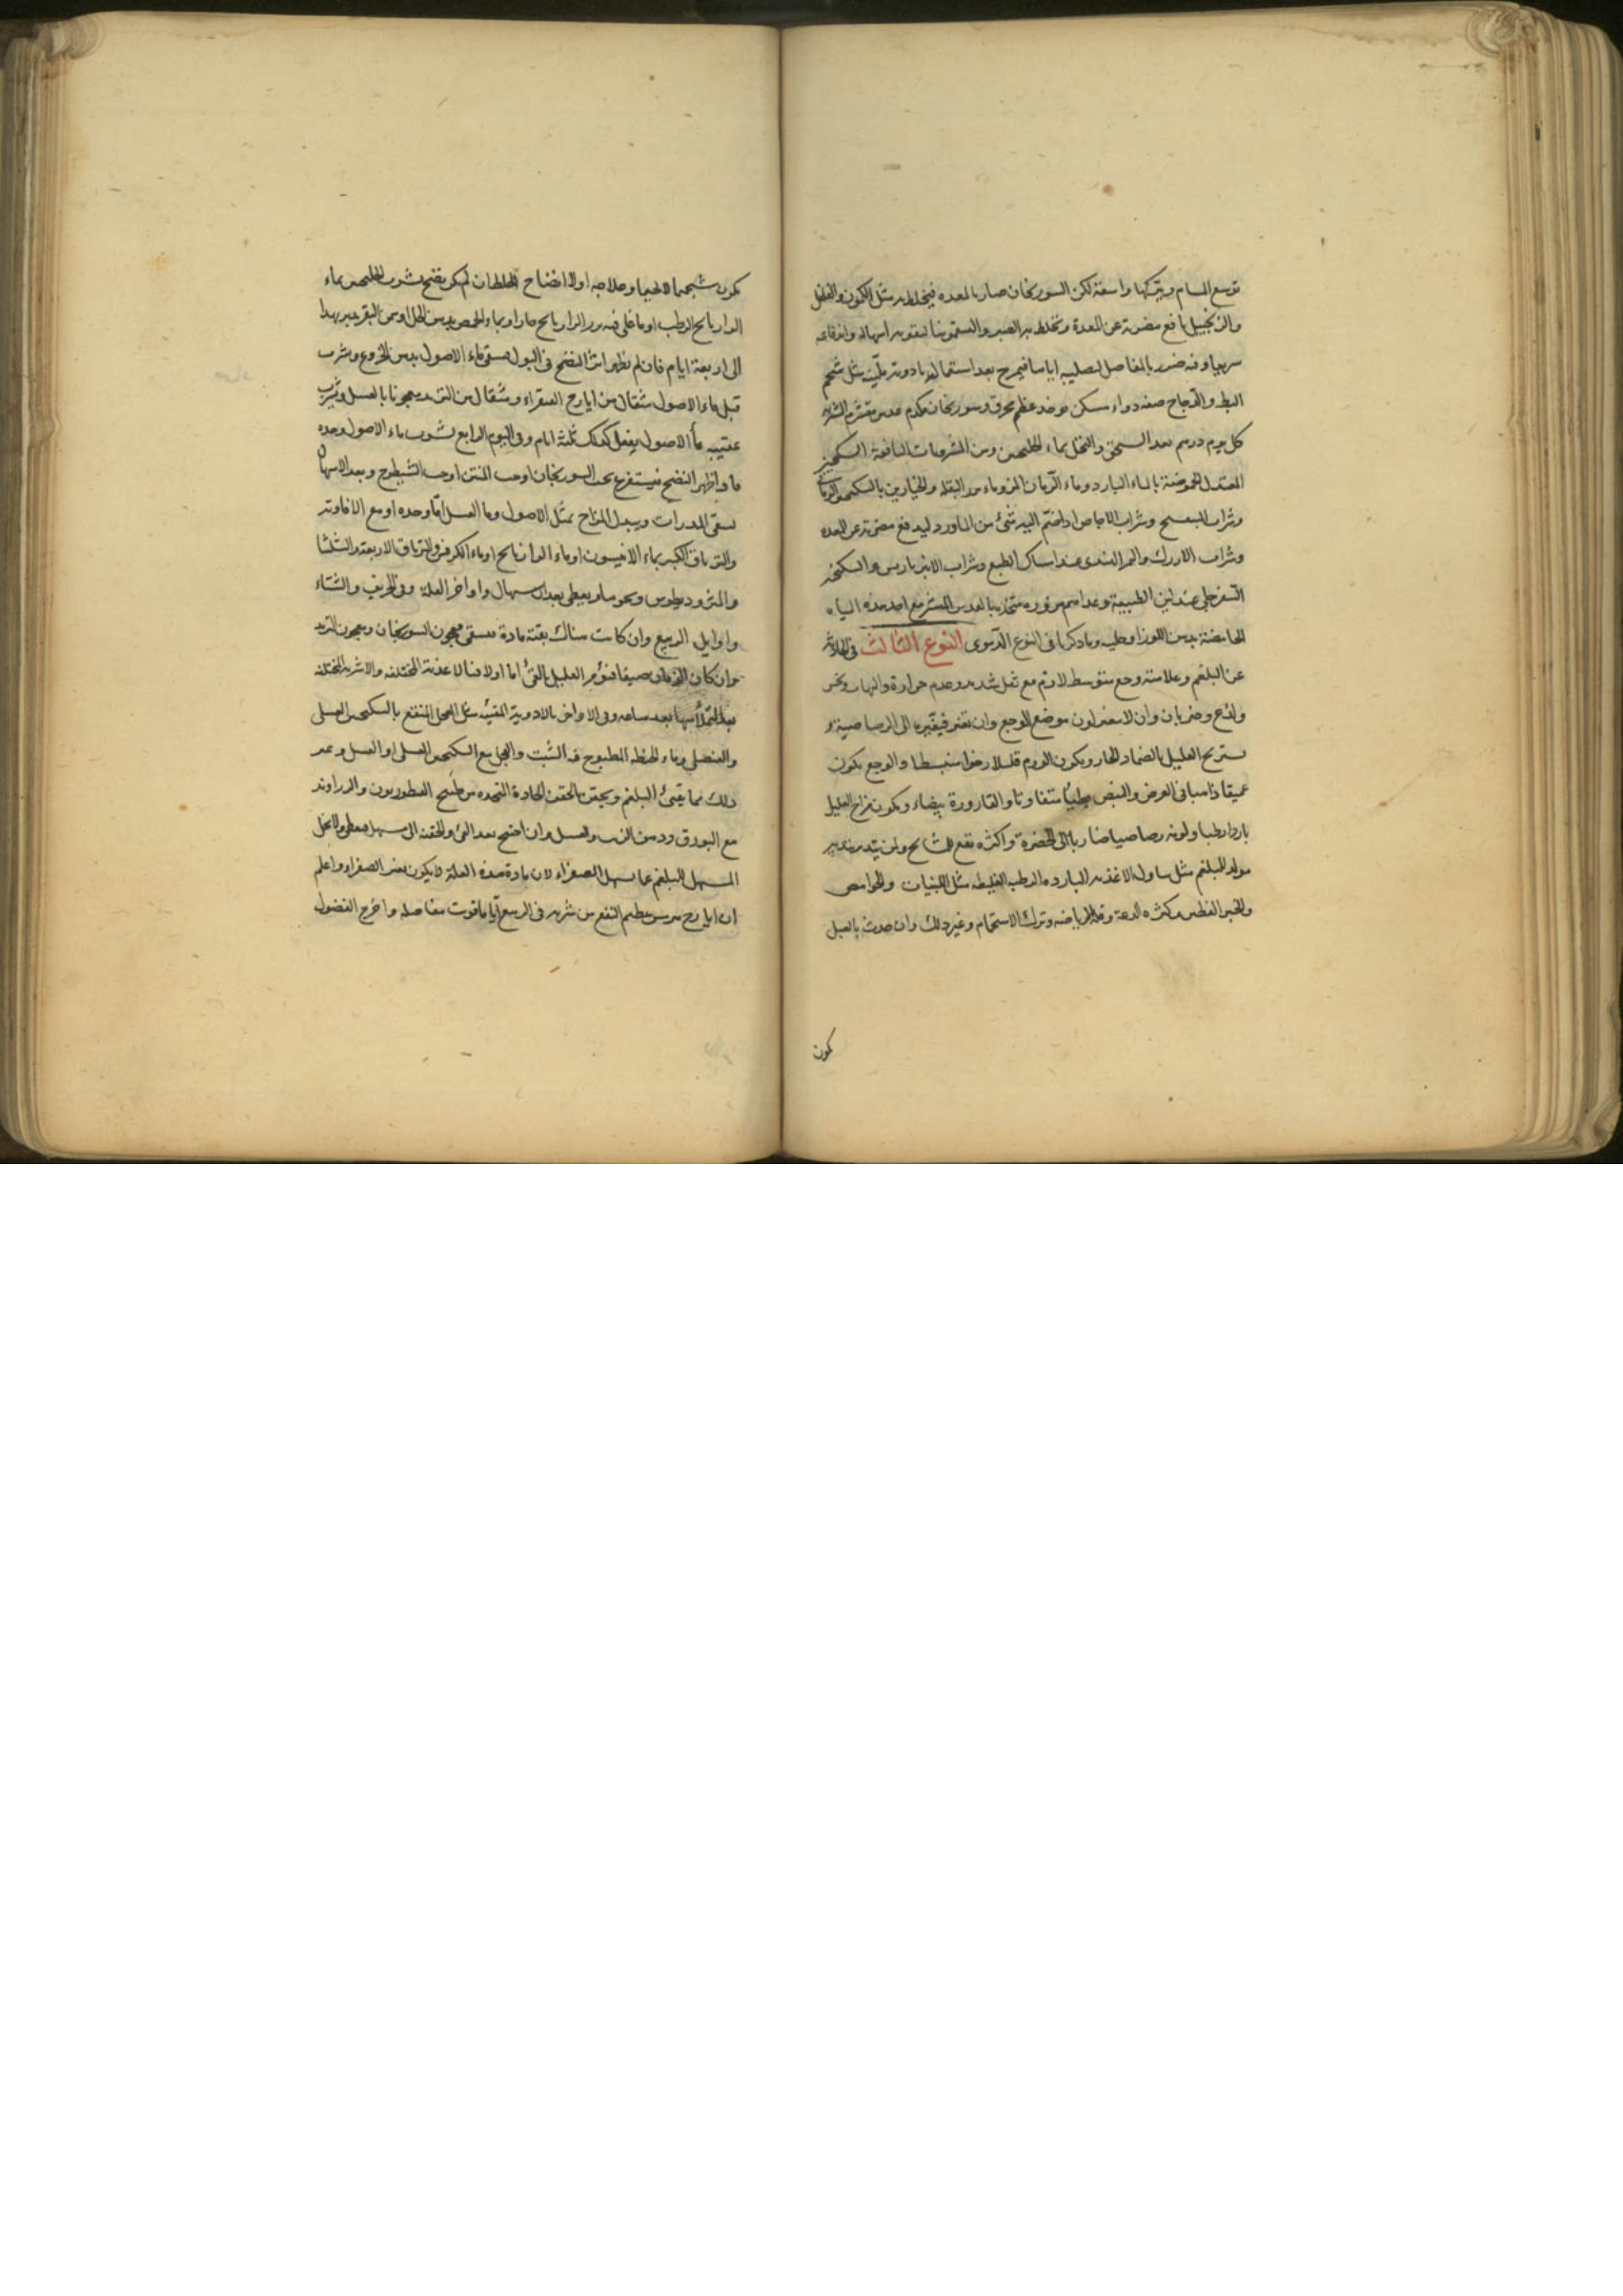 توسع المسام ويتركها واسعة لكن السورنجان ضار بالمعده فيخلط به مثل الكمون والفلفل
والزنجبيل دافع مضرته عن المعدة ويخلط به الصبر والسقمونيا لتقويه اسهاله واندفاعه
سريعا وفيه ضرر بالمفاصل لتصليبه اياها فيمرخ بعد استعماله بادويه ملينه مثل شحم
البط والدجاج صفه دواء مسكن يوخذ عظم محرق وسورنجان مكدم عدس مقشر الشربه
كل يوم درهم بعد السحق والنخل بماء الجلنجبين ومن المشروبات النافعة السكنجبين
المعتدل الحموضة بالماء البارد وماء الرمان المز وماء ورد البقله والخيارين بالسكنجبين الرمانى
وشراب البنفسج وشراب الاجاص اذا ضم اليه شئ من الماورد ليدفع مضرته عن المعده
وشراب والتمر الهندى عند امساك الطبع وشراب الانبرباريس والسكنجبين
السفرجلى عند لين الطبيعة وغداهم مزوره متخذه بالعدس المقشر مع احد هذه المياه
الحامضة بدهن اللوز او طليه وما ذكرنا فى النوع الدموى النوع الثالث فى الحادث
عن البلغم وعلامته وجع متوسط لازم مع ثقل شديد وعدم حرارة والتهاب ونخس
ولذع وضربان وان لا يتغير لون موضع الوجع وان تغير فيغيره الى الرصاصية و
يستريح العليل بالضماد الحار ويكون الورم قليلا رخوا منبسطا والوجع يكون
عميقا ذاهبا فى العرض والنبض بطيئا متفاوتا والقارورة بيضاء ويكون مزاج العليل
باردا رطبا ولونه رصاصيا ضاربا الى الخضرة واكثره يقع للمشايخ ولمن يتدبر بتدبير
مولد للبلغم مثل تناول الاغذيه البارده الرطبه الغليظه مثل اللبنيات والحوامض
والخبز الفطير وكثره الدعة وقله الرياضه وترك الاستحمام وغير ذلك وان حدث بالعليل
كمون
يكون شبيهه بالحميا وعلاجه اولا انضاج الخلط ان لم يكن نضج بشرب الجلنجبين بماء
الرازيانج الرطب او ما غلى فيه بزر الرازيانج حارا وبماء الحمص بدهن الخل او سمن البقر يدبر بهذا
الى اربعة ايام فان لم يظهر اثر النضج فى البول يسقى ماء الاصول بدهن الخروع ويشرب
قبل ماء الاصول مثقال من ايارج الفيقراء ومثقال من التربد معجونا بالعسل ويشرب
عقيبه ماء الاصول يفعل كذلك ثلثة ايام وفى اليوم الرابع يشرب ماء الاصول وحده
فاذا ظهر النضج فيستفرغ بحب السورنجان او حب المنتن او حب الشيطرج وبعد الاسهال
يسقى المدرات ويبدل المزاج بمثل الاصول وماء العسل اما وحده او مع الافاويه
والترياق الكبير بماء الانيسون او ماء الرازيانج او ماء الكرفس والترياق الاربعة والشليثا
والمثروديطوس ونحوها ويعطى بعد الاسهال واواخر العلة وفى الخريف والشتاء
واوايل الربيع وان كانت هناك بقية مادة يسقى معجون السورنجان ومعجون التربد
وان كان الزمان صيفا فنؤمر العليل بالقئ اما اولا فبالاغذية المختلفه والاشربه المختلفه
بعد التملأ منها بعد ساعه وفى الاواخر بالادويه المقيئه مثل الفجل المنقع بالسكنجبين العسلى
والعنصلى وماء الحنطه المطبوخ فيه الشبت والفجل مع السكنجبين العسلى او العسل وغير
ذلك مما يقئ البلغم ويحقن بالحقن الحادة المتخذه من طبيخ القنطوريون والزراوند
مع البورق ودهن الزيت والعسل وان احتيج بعد القئ والحقنه الى مسهل فيعطى ولا يخل
المسهل البلغم عما يسهل الصفراء لان مادة هذه العلة لا يكون بغير الصفراء واعلم
ان ايارج هرمس عظيم النفع من شربه فى الربيع اياما قويت مفاصله واخرج الفضول